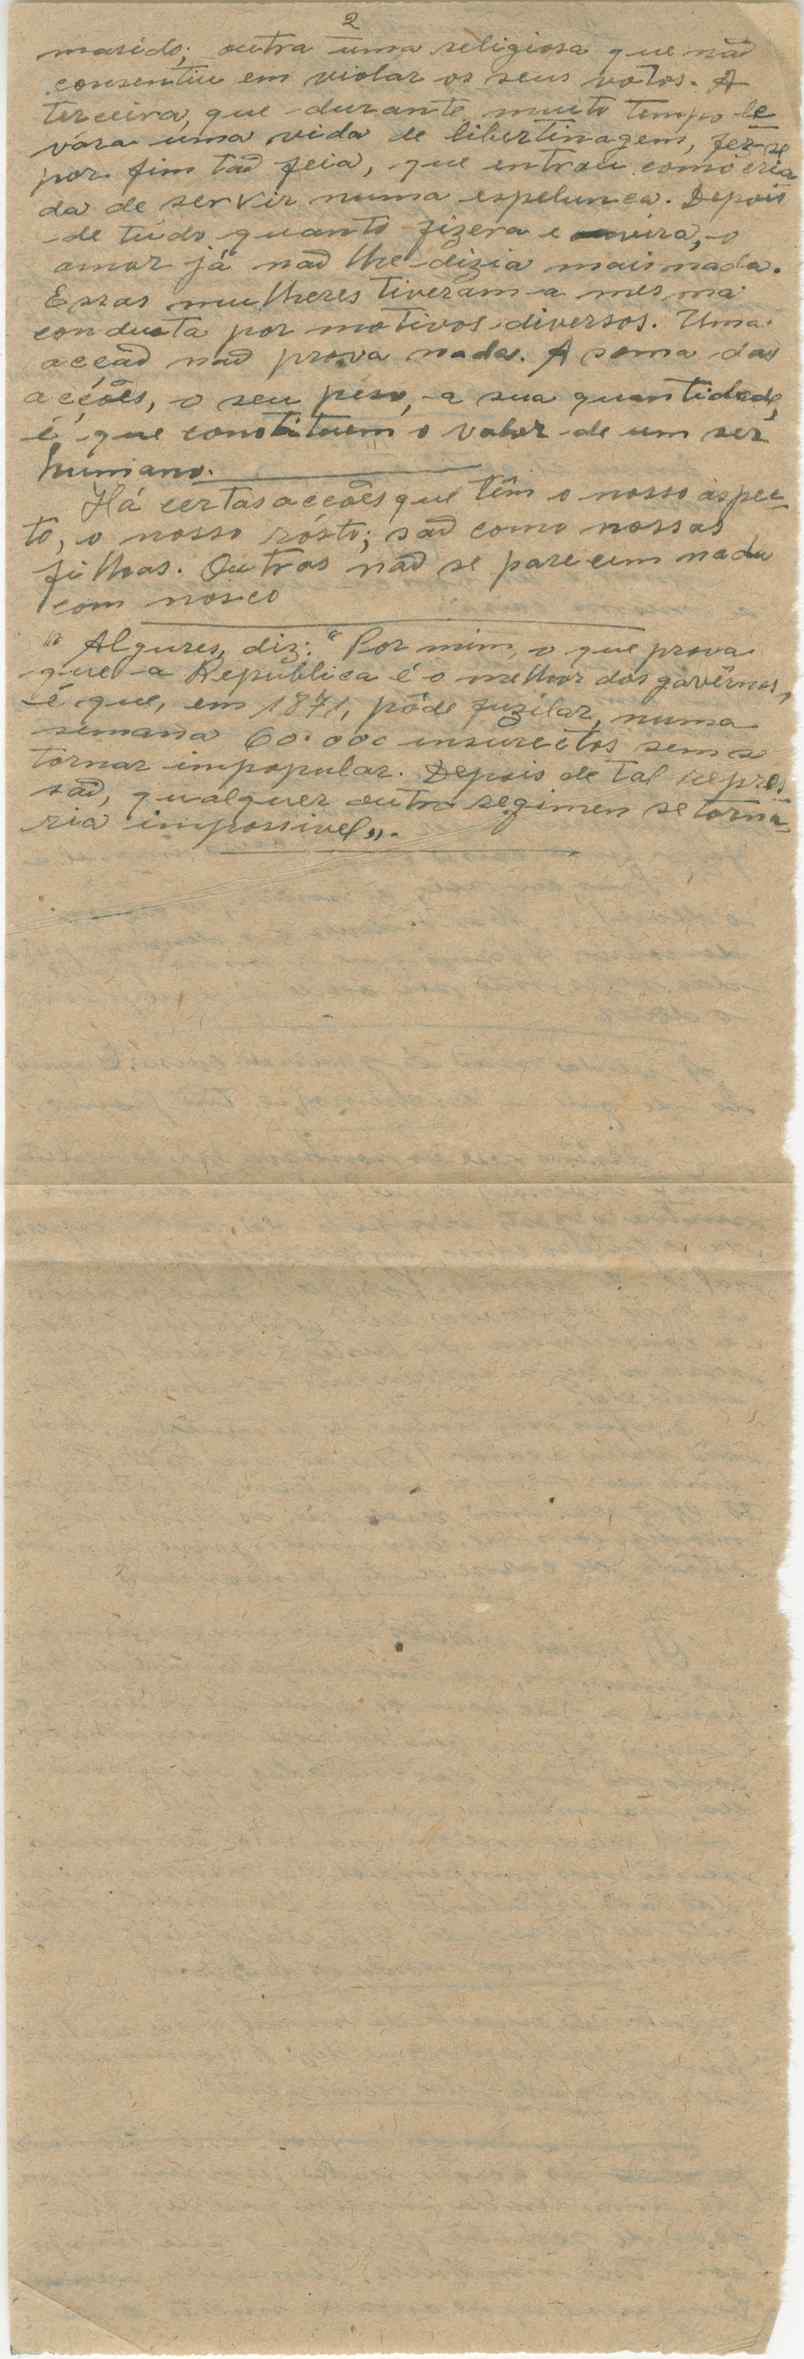 2
marido; outra uma religiosa que não
consentiu em violar os seus votos. A
terceira, que durante muito tempo le
vára uma vida de libertinagem, fez-se
por fim tão feia, que entrou como cria
da de servir numa espelunca. Depois
de tudo quanto fizera e vira, o
amor já não lhe dizia mais nada.
Essas mulheres tiveram a mesma
conducta por motivos diversos. Uma
acção não prova nada. A soma das
acções, o seu peso, a sua quantidade,
é que constituem o valor de um ser
humano.
Há certas acções que têm o nosso aspec-
to, o nosso rôsto; são como nossas
filhas. Outras não se parecem nada
com nosco
" Algures, diz: "Por mim, o que prova
que a Republica é o melhor dos govêrnos,
é que, em 1871, pôde fuzilar, numa
semana 60.000 insurectos sem se
tornar impopular. Depois de tal repres
são, qualquer outro regimen se torna-
ria impossivel".